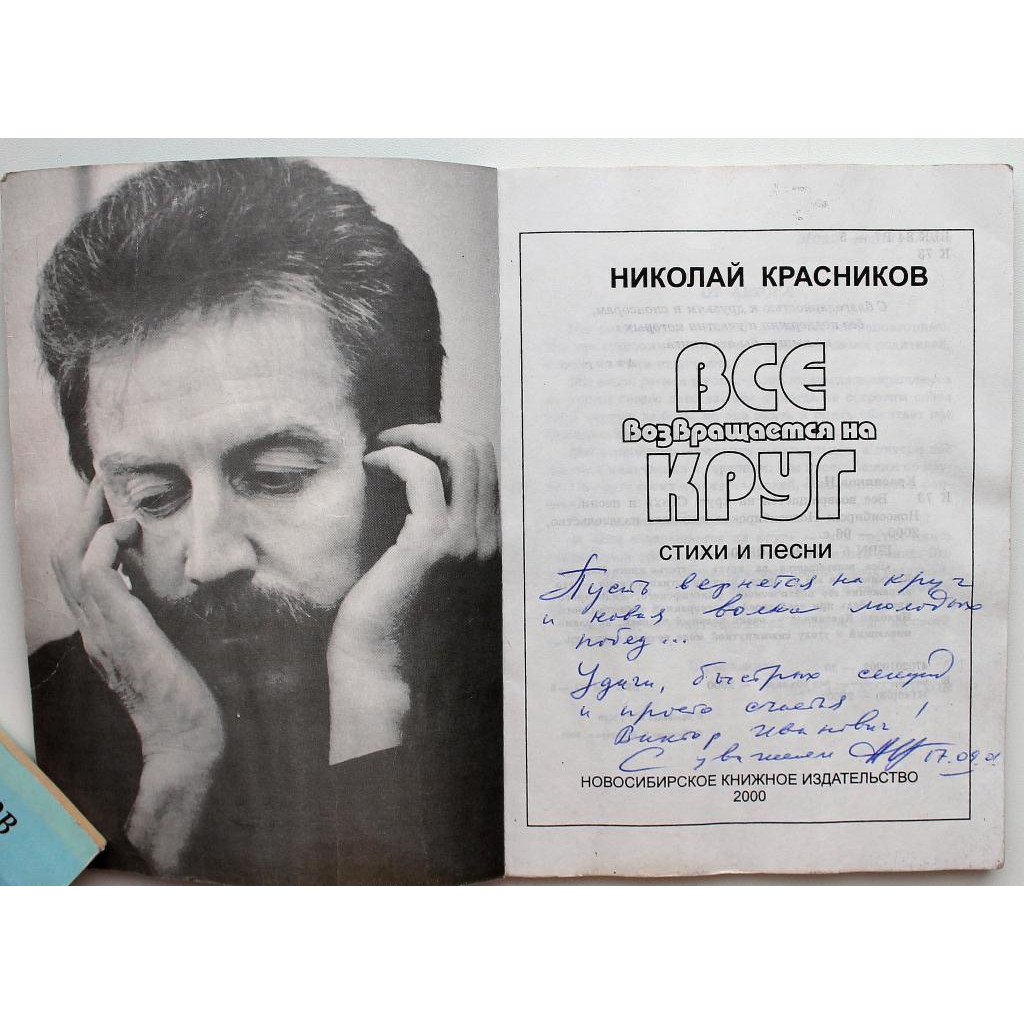 ОВ
НИКОЛАЙ КРАСНИКОВ
ВСЕ
возвращается на
КРУГ
СТИХИ И ПЕСНИ
Пусть вернется на круг
и новая волна молодых
побед...
Удачи, быстрых секунд
и просто счастья,
Виктор Иванович!
С уважением 17.09.01
НОВОСИБИРСКОЕ КНИЖНОЕ ИЗДАТЕЛЬСТВО
2000